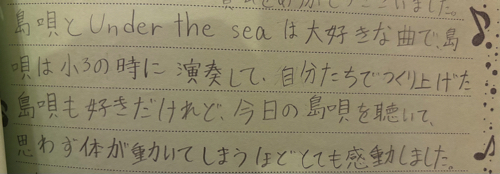 ございました。
島唄とUnder the seaは大好きな曲で、島
唄は小3の時に演奏して、自分たちでつくり上げた
島唄も好きだけれど、今日の島唄を聴いて、
思わず体が動いてしまうほどとても感動しました。